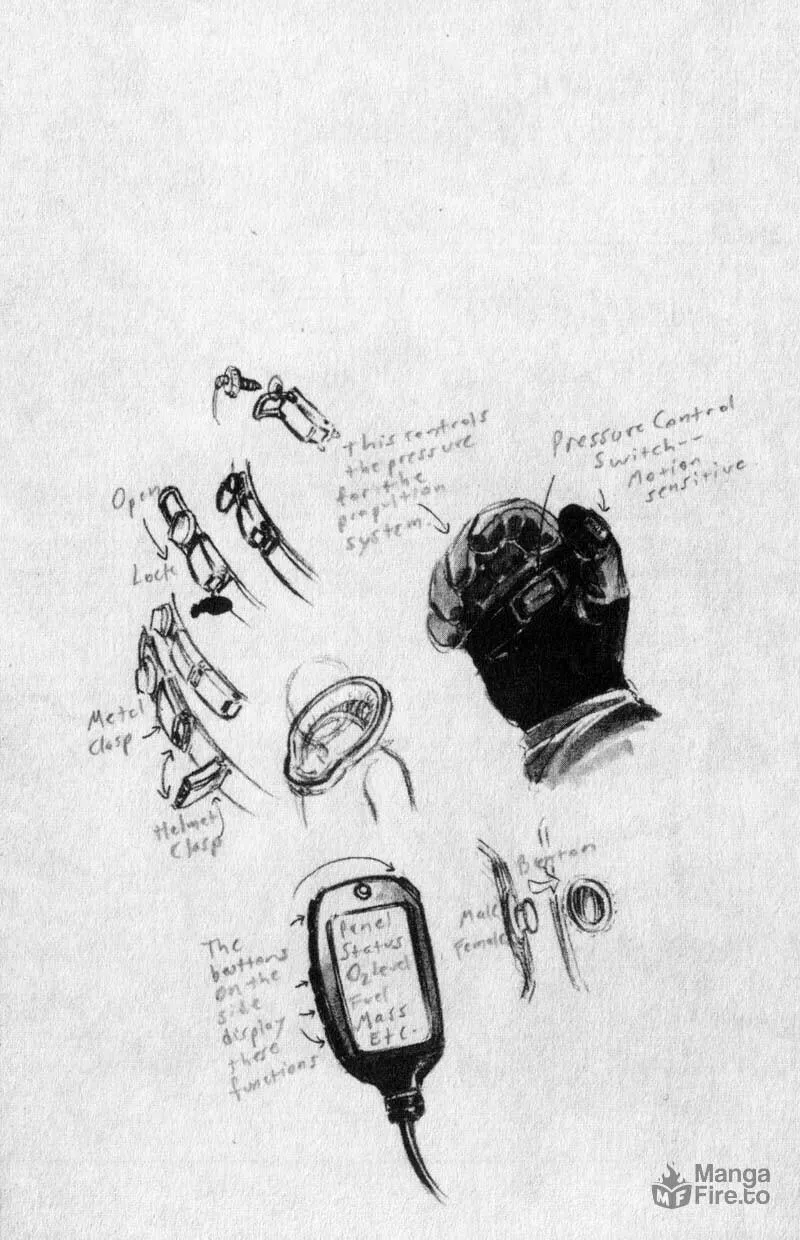 This controls
the pressure
for the
propultion
system.
Pressure Control
Switch--
Motion
sensitive
Open
Lock
Metal
Clasp
Helmet
Clasp
Button
Male
Female
The
buttons
on the
side
display
these
functions
Panel
Status
O2 level
Fuel
Mass
Etc.
Manga
Fire.to
MF